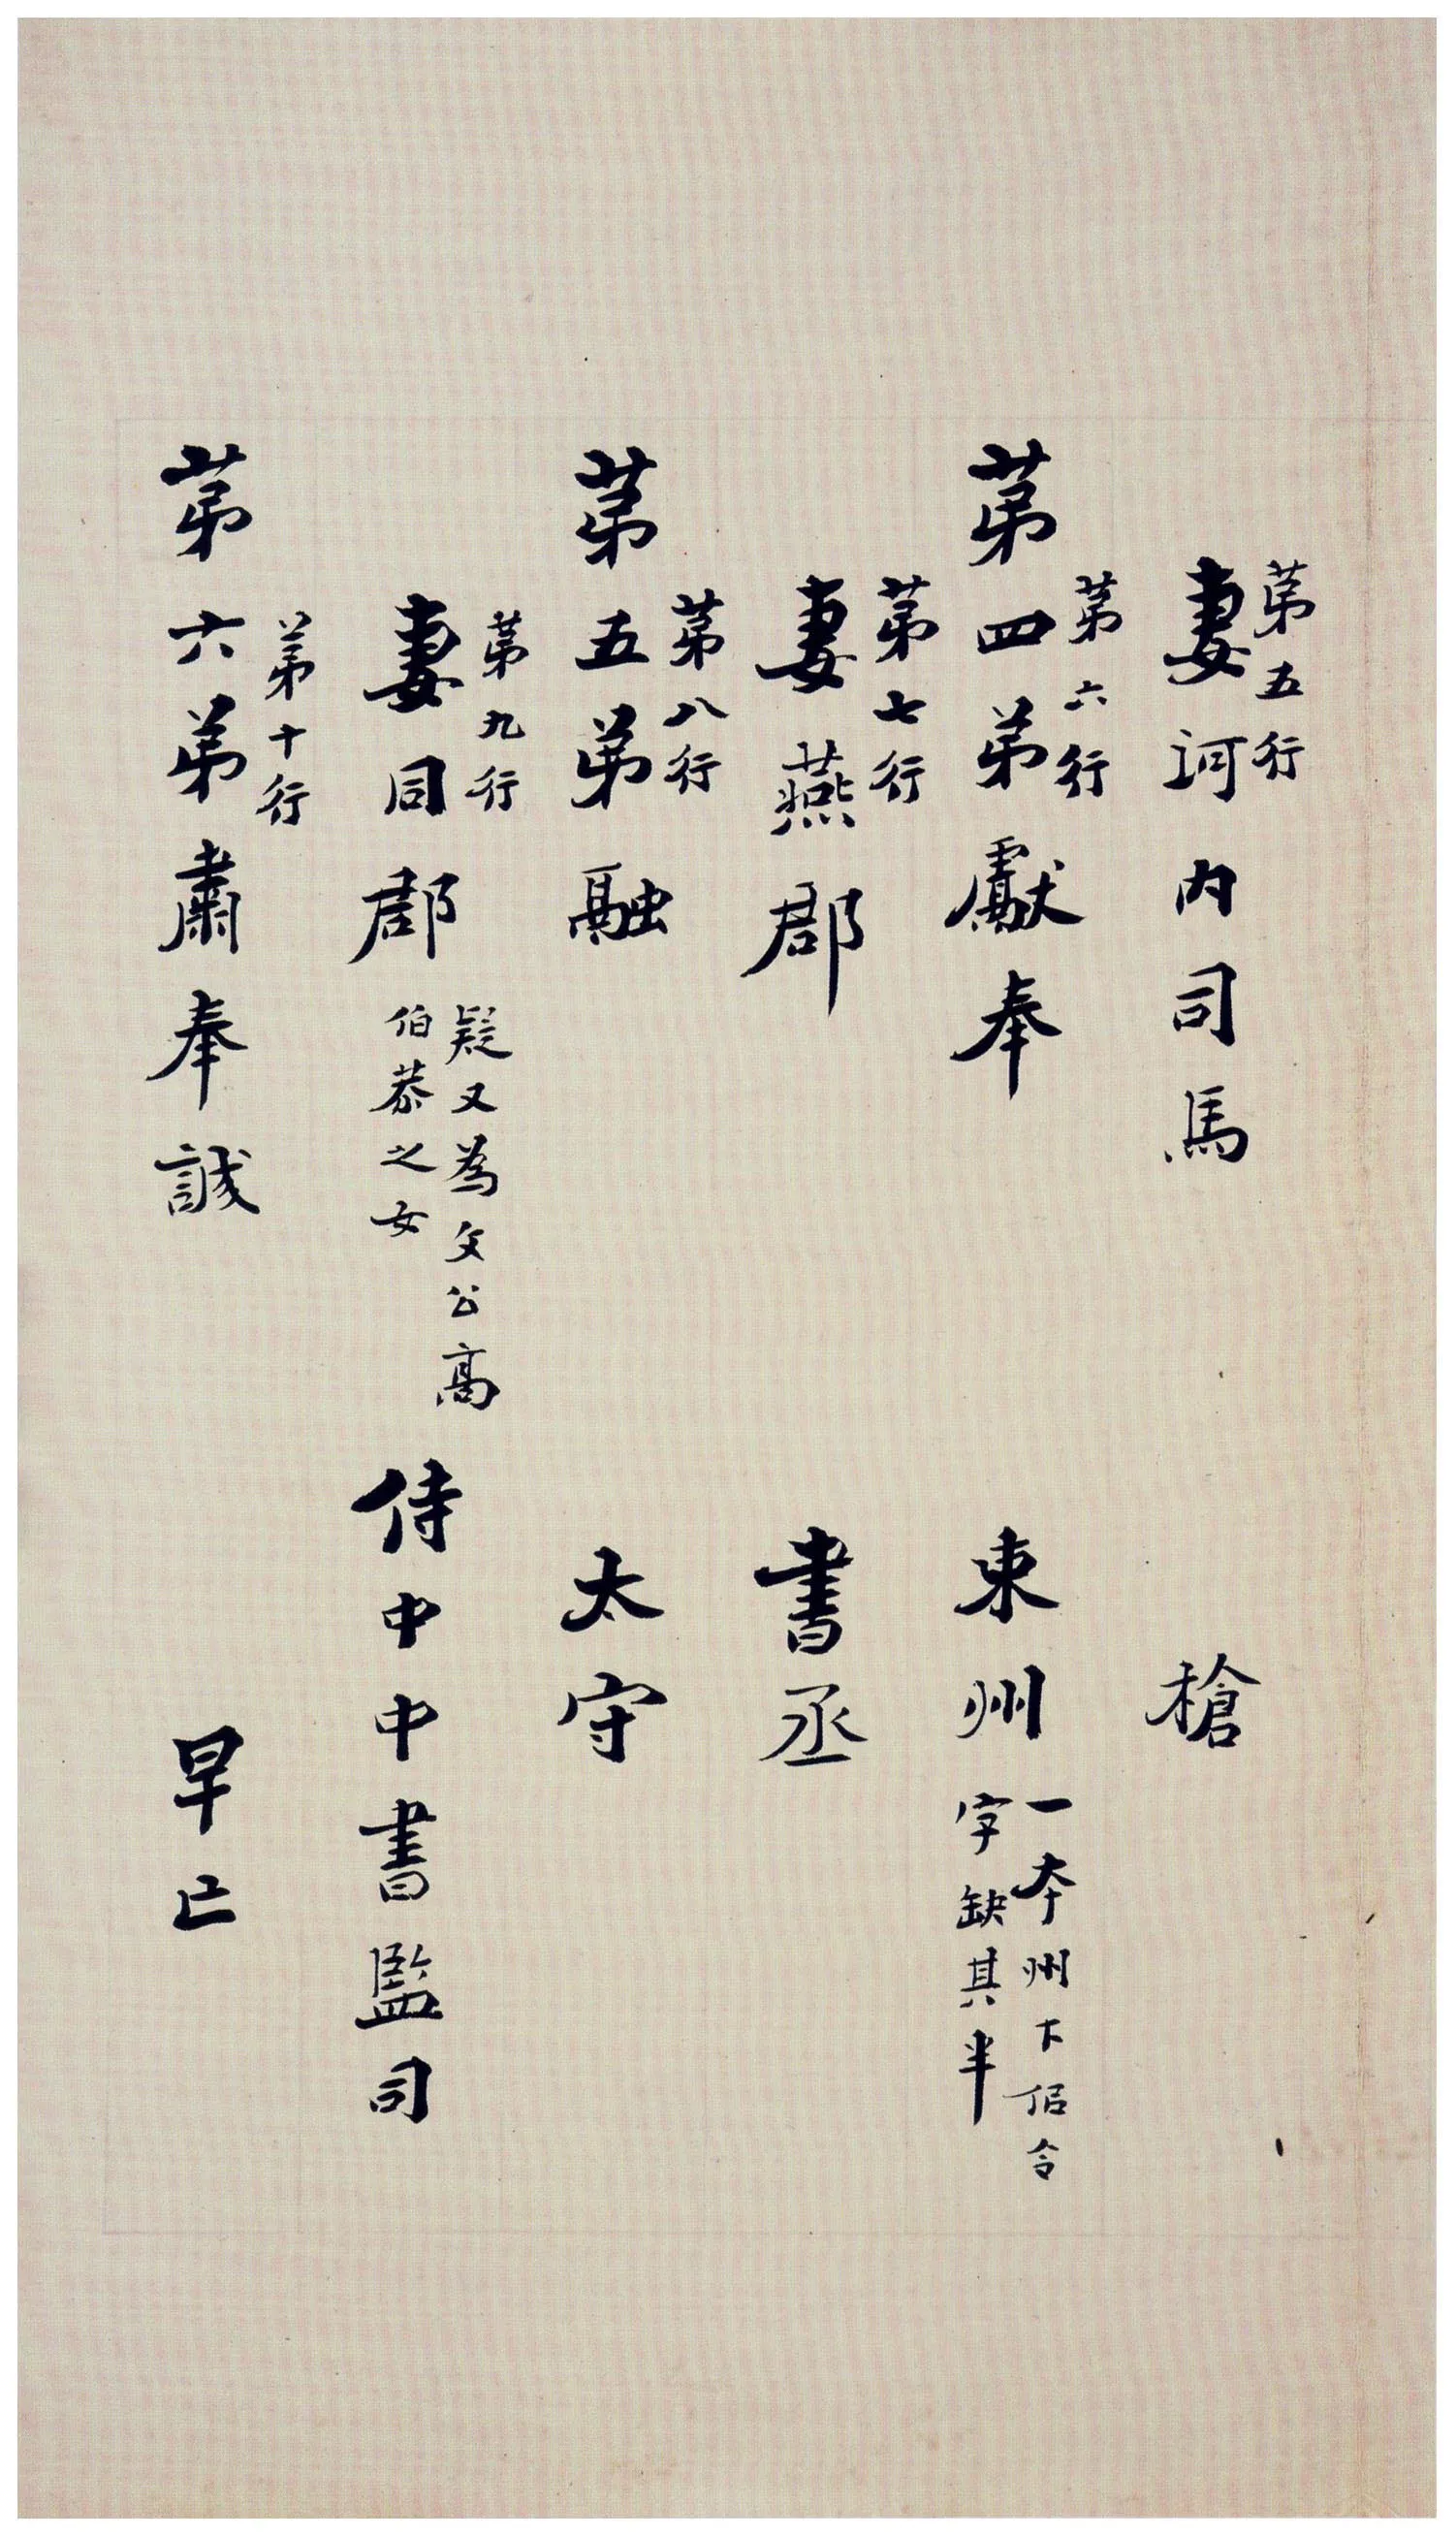 第五行
妻河内司馬
槍
第六行
第四弟獻奉
東州
一本州下侶令
字缺其半
第七行
妻燕郡
書丞
第八行
第五弟融
太守
第九行
妻同郡
疑又為文公高
伯恭之女
侍中中書監司
第十行
第六弟肅奉誠
早亡